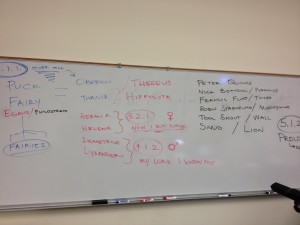 1.1.
PUCK
FAIRY
EGEUS / PHILOSTRATE
FAIRIES
OBERON
TITANIA
THESEUS
HIPPOLYTA
HERMIA
HELENA
3.2.1
♀
DEMETRIUS
LYSANDER
4.1.2
♂
PETER QUINCE
NICK BOTTOM / PYRAMUS
FRANCIS FLUTE / THISBE
ROBIN STARVELING / MOONSHINE
TOM SNOUT / WALL
SNUG / LION
5.1.2